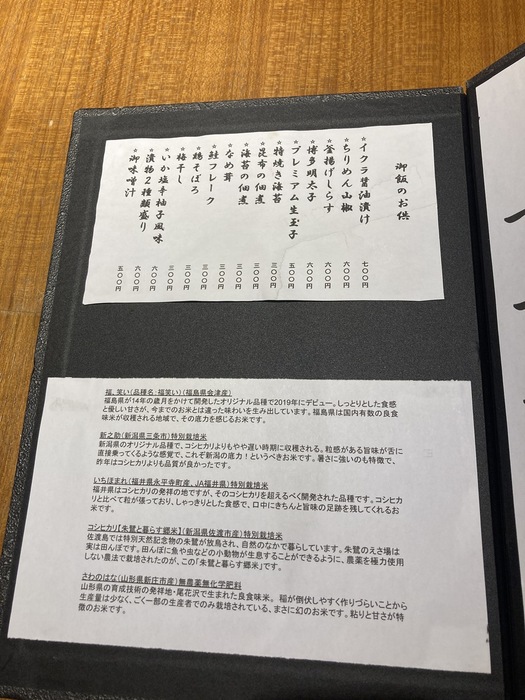 御飯のお供
☆イクラ醤油漬け 七〇〇円
☆ちりめん山椒 六〇〇円
☆釜揚げしらす 六〇〇円
☆博多明太子 六〇〇円
☆プレミアム生玉子 五〇〇円
☆特焼き海苔 三〇〇円
☆昆布の佃煮 三〇〇円
☆海苔の佃煮 三〇〇円
☆なめ茸 三〇〇円
☆鮭フレーク 三〇〇円
☆鶏そぼろ 三〇〇円
☆梅干し 三〇〇円
☆いか塩辛柚子風味 三〇〇円
☆漬物２種類盛り 六〇〇円
☆御味噌汁 五〇〇円
福、笑い(品種名:福笑い)(福島県会津産)
福島県が14年の歳月をかけて開発したオリジナル品種で2019年にデビュー。しっとりとした食感
と優しい甘さが、今までのお米とは違った味わいを生み出しています。福島県は国内有数の良食
味米が収穫される地域で、その底力を感じるお米です。
新之助(新潟県三条市)特別栽培米
新潟県のオリジナル品種で、コシヒカリよりもやや遅い時期に収穫される。粒感がある旨味が舌に
直接乗ってくるような感覚で、これぞ新潟の底力！というべきお米です。暑さに強いのも特徴で、
昨年はコシヒカリよりも品質が良かったです。
いちほまれ(福井県永平寺町産、JA福井県)特別栽培米
福井県はコシヒカリの発祥の地ですが、そのコシヒカリを超えるべく開発された品種です。コシヒカ
リと比べて粒が張っており、しゃっきりとした食感で、口中にきちんと旨味の足跡を残してくれるお
米です。
コシヒカリ【朱鷺と暮らす郷米】(新潟県佐渡市産)特別栽培米
佐渡島では特別天然記念物の朱鷺が放鳥され、自然のなかで暮らしています。朱鷺のえさ場は
実は田んぼです。田んぼに魚や虫などの小動物が生息することができるように、農薬を極力使用
しない農法で栽培されたのが、この「朱鷺と暮らす郷米」です。
さわのはな(山形県新庄市産)無農薬無化学肥料
山形県の育成技術の発祥地・尾花沢で生まれた良食味米。 稲が倒伏しやすく作りづらいことから
生産量は少なく、ごく一部の生産者でのみ栽培されている、まさに幻のお米です。粘りと甘さが特
徴のお米です。